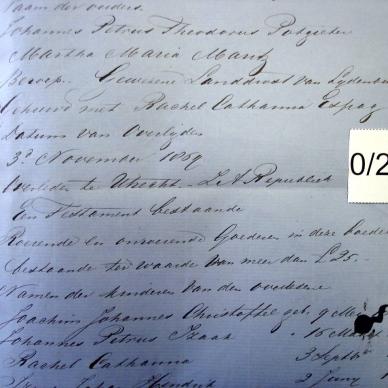 Naam der ouders.
Johannes Petrus Theodorus Potgieter
Martha Maria
Beroep. Gewesene Landdrost van Lydenburg
Gehuwd met Rachel Catharina
Datum van Overlijden
3e November 1869
Overleden te Utrecht - Z A Republiek
Een Testament bestaande
Roerende en onroerende Goederen in deze boedel
bestaande ter waarde van meer dan £25.-
Namen der kinderen van den overledene
Joachim Johannes Christoffel geb. 9 Mei
Johannes Petrus Izaak " 15
Rachel Catharina 3 Septb
Hendrik 2 Juny
0/2